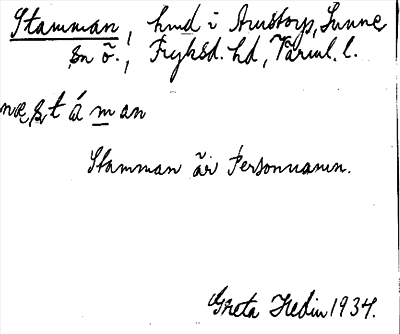 Stamman, hmd i Arnstorp, Sunne
sn ö., Fryksd. hd, Värml. l.
næstáman
Stamman är Personnamn.
Greta Hedin 1934.